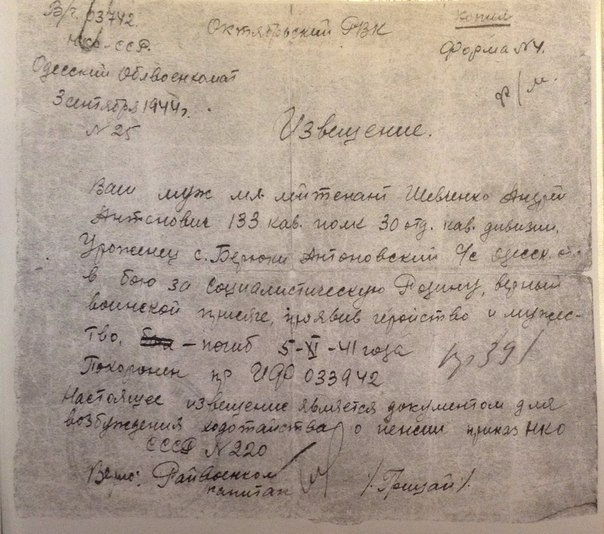 В/г. 03742.
НКО-СССР.
Октябрьский РВК
Копия
Форма №4.
Одесский Облвоенкомат
3 сентября 1944 г.
№ 25
Извещение.
Ваш муж мл. лейтенант Шевченко Андрей
Антонович 133 кав. полк 30 отд. кав. дивизии,
Уроженец с. Берюки Антоновский с/с Одесск. обл.
в бою за Социалистическую Родину, верный
воинской присяге, проявив геройство и мужес-
тво, – погиб 5-XI-41 года
Похоронен 033942
Настоящее извещение является документом для
возбуждения ходотайства о пенсии приказ НКО
СССР № 220
Верно: Райвоенком
капитан /Грицай/.